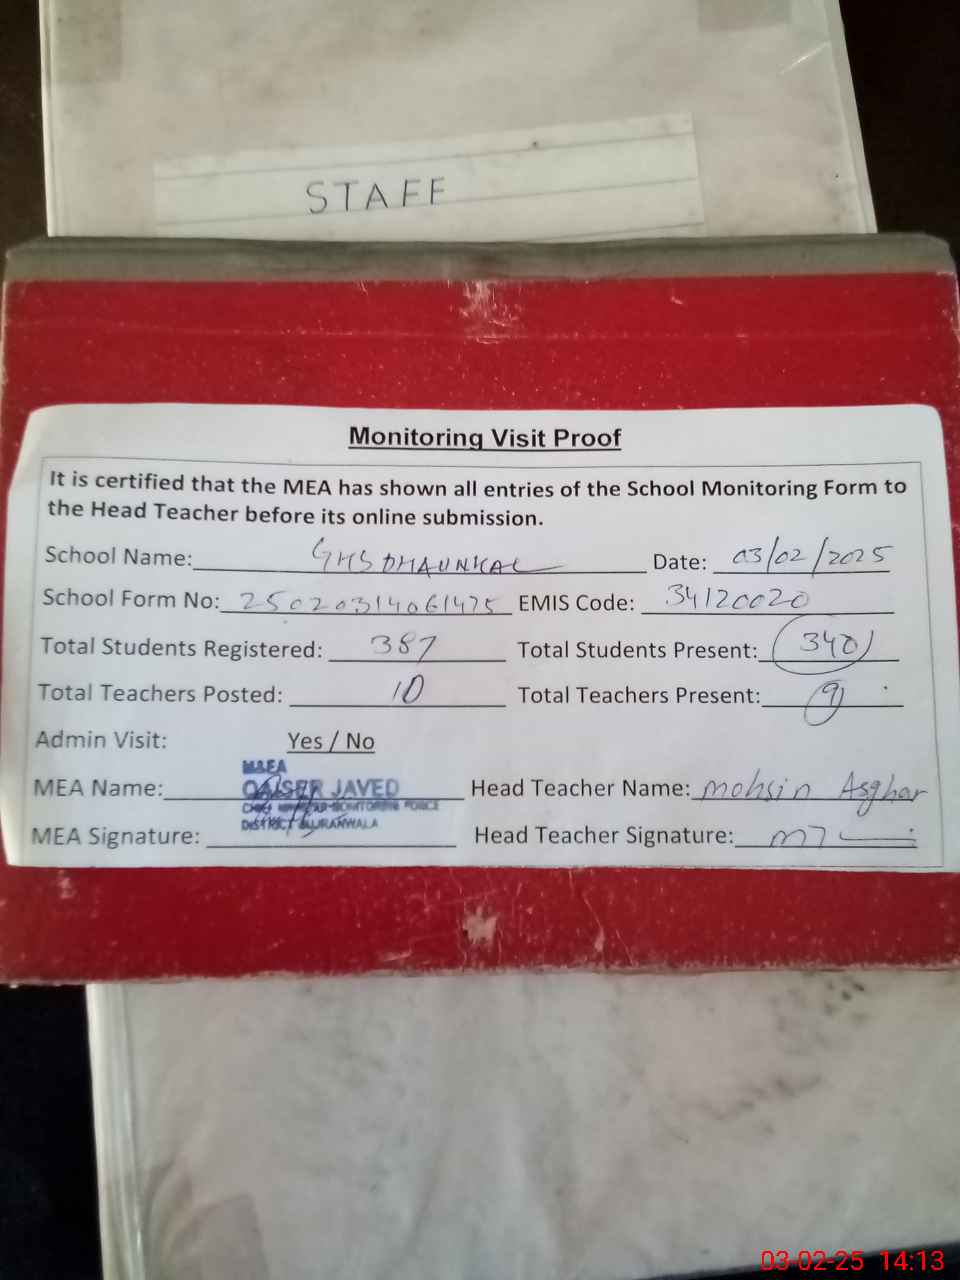 STAFF
Monitoring Visit Proof
It is certified that the MEA has shown all entries of the School Monitoring Form to
the Head Teacher before its online submission.
School Name: GHS DHAUNKAL Date: 03/02/2025
School Form No: 25020314061475 EMIS Code: 34120020
Total Students Registered: 387 Total Students Present: 340
Total Teachers Posted: 10 Total Teachers Present: 9
Admin Visit: Yes / No
M&EA
MEA Name: QAISER JAVED Head Teacher Name: Mohsin Asghar
CHIEF MINISTER MONITORING FORCE
DISTRICT GUJRANWALA
MEA Signature: Head Teacher Signature:
03-02-25 14:13